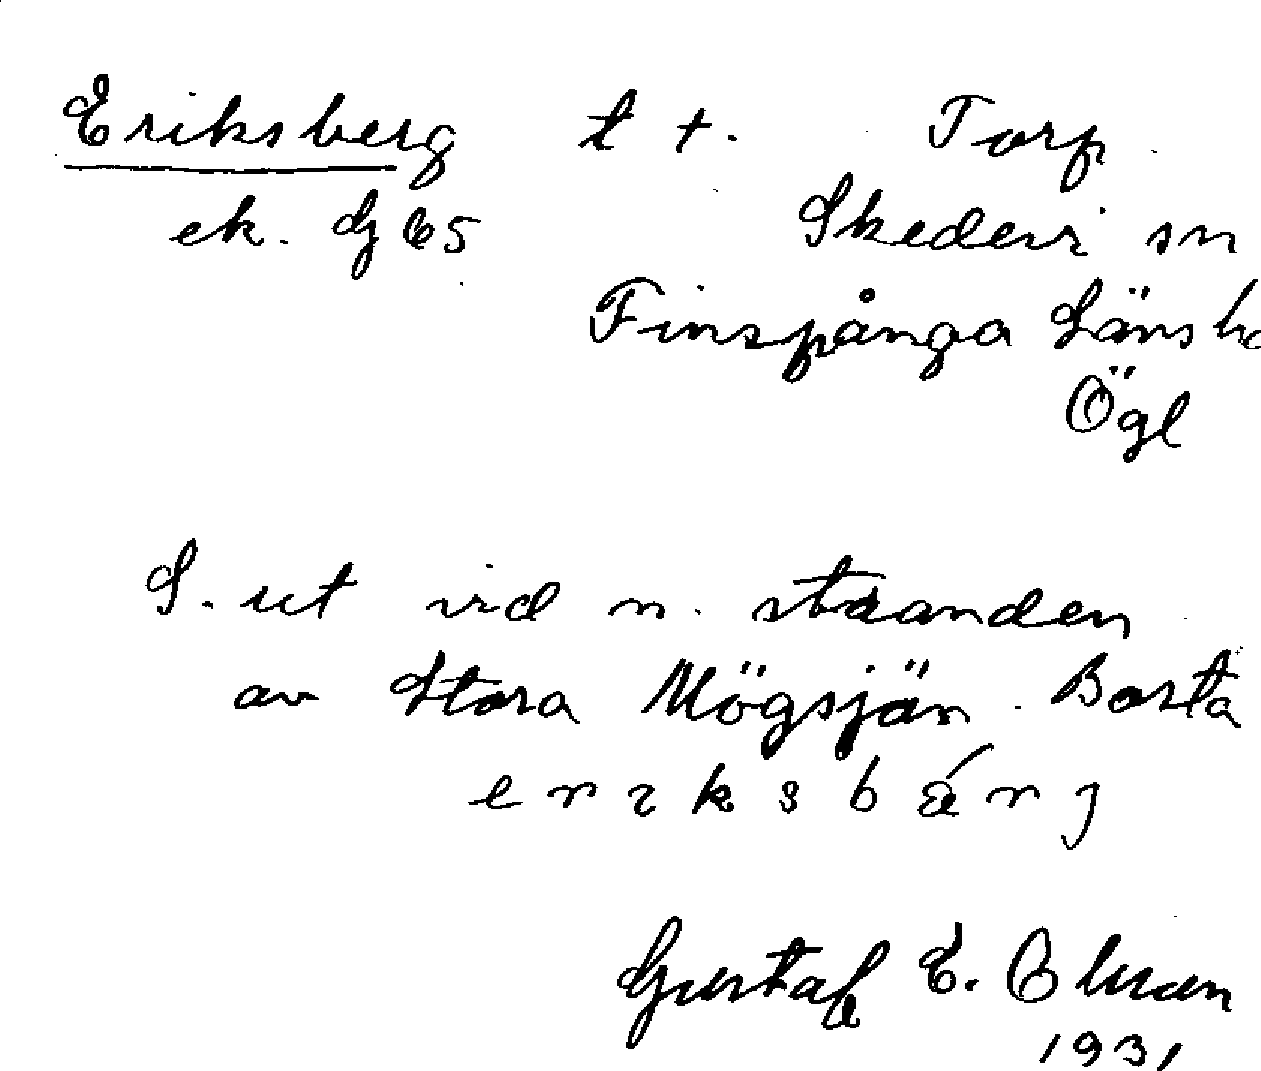 Eriksberg t +. Torp
ek. Gj 65 Skedevi sn
Finspånga Länsh
Ögl
S. ut vid n. stranden
av Stora Mögsjön. Borta
eriksbärj
Gustaf E. Olman
1931